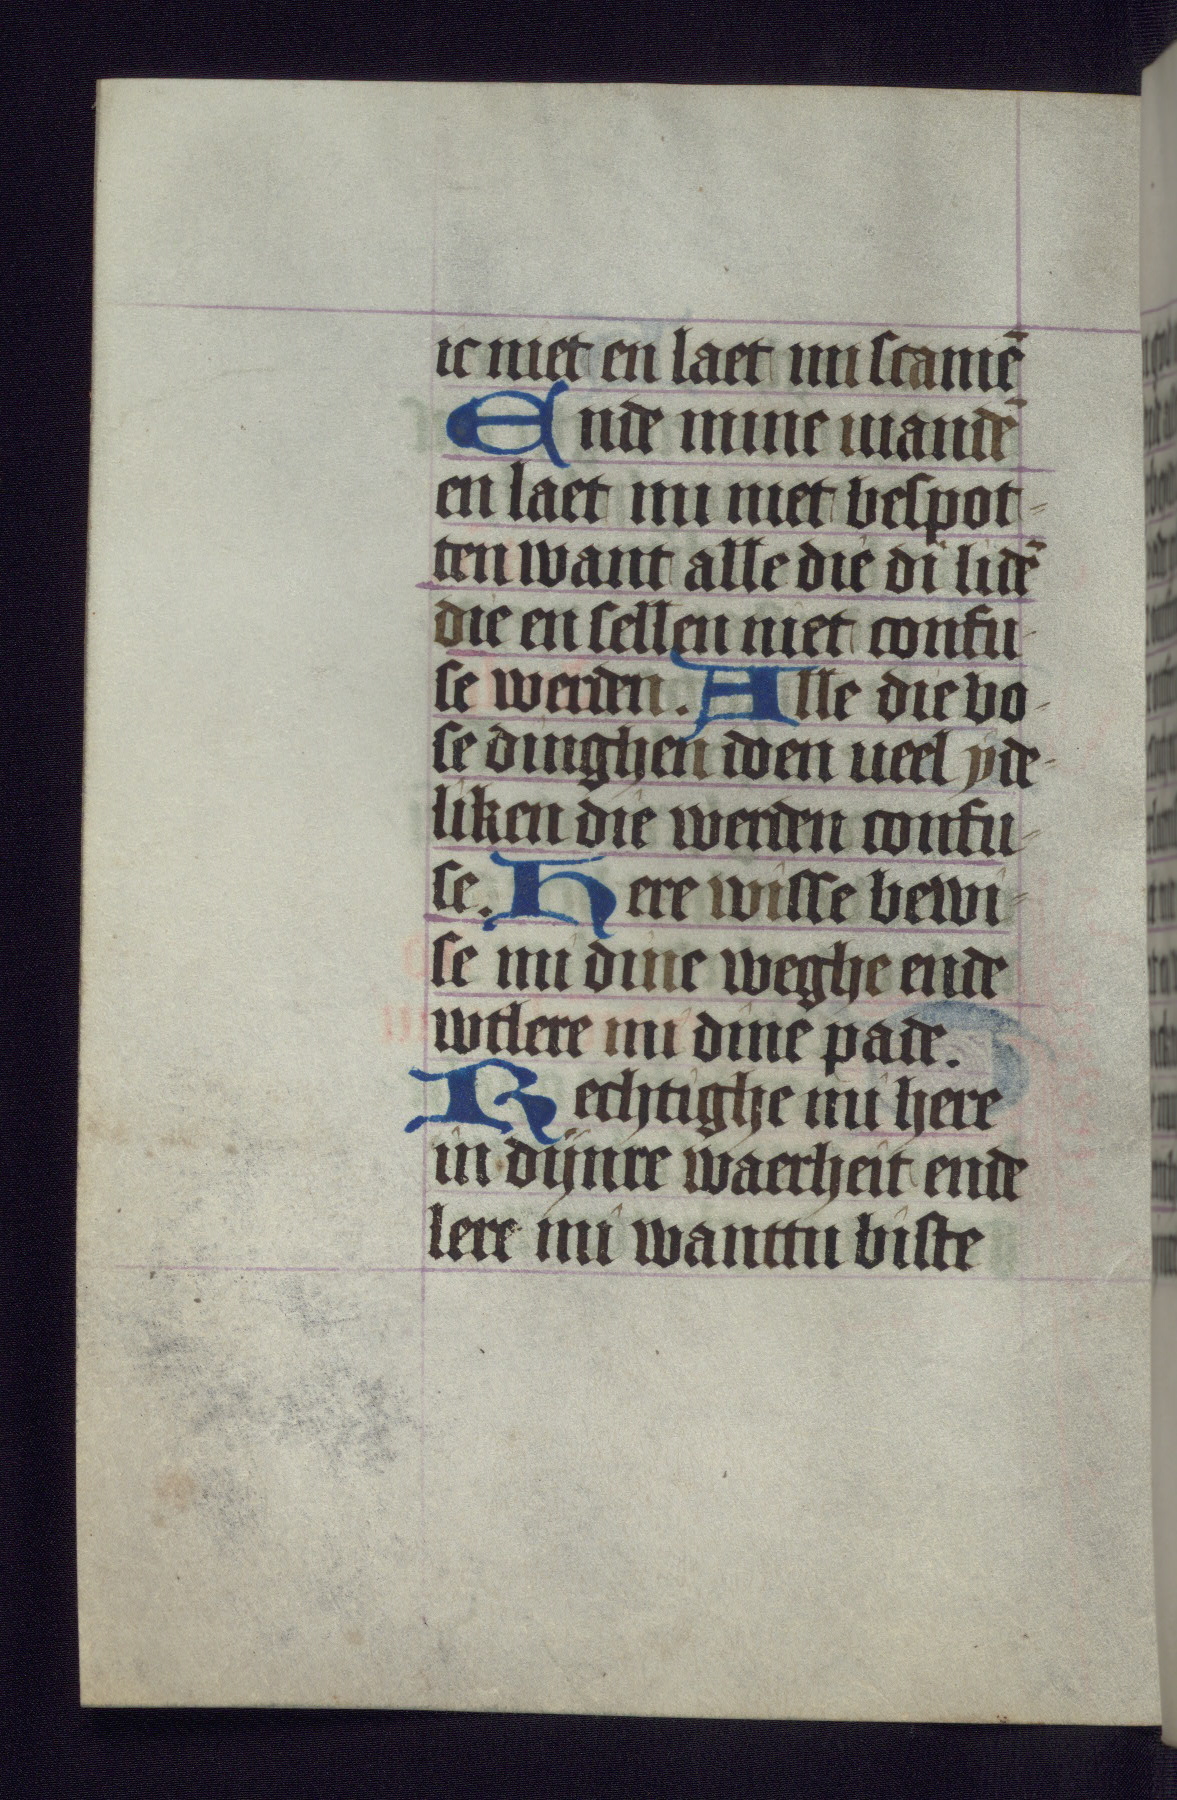 ic niet en laet mi scamē
Ende mine uiandē
en laet mi niet bespot-
ten want alle die di lidē
die en sellen niet confu-
se werden. Alle die bo-
se dinghen doen ueel yde-
liken die werden confu-
se. Here wisse bewi-
se mi dine weghe ende
wtlere mi dine pade.
Rechtighe mi here
in dijnre waerheit ende
lere mi wanttu biste